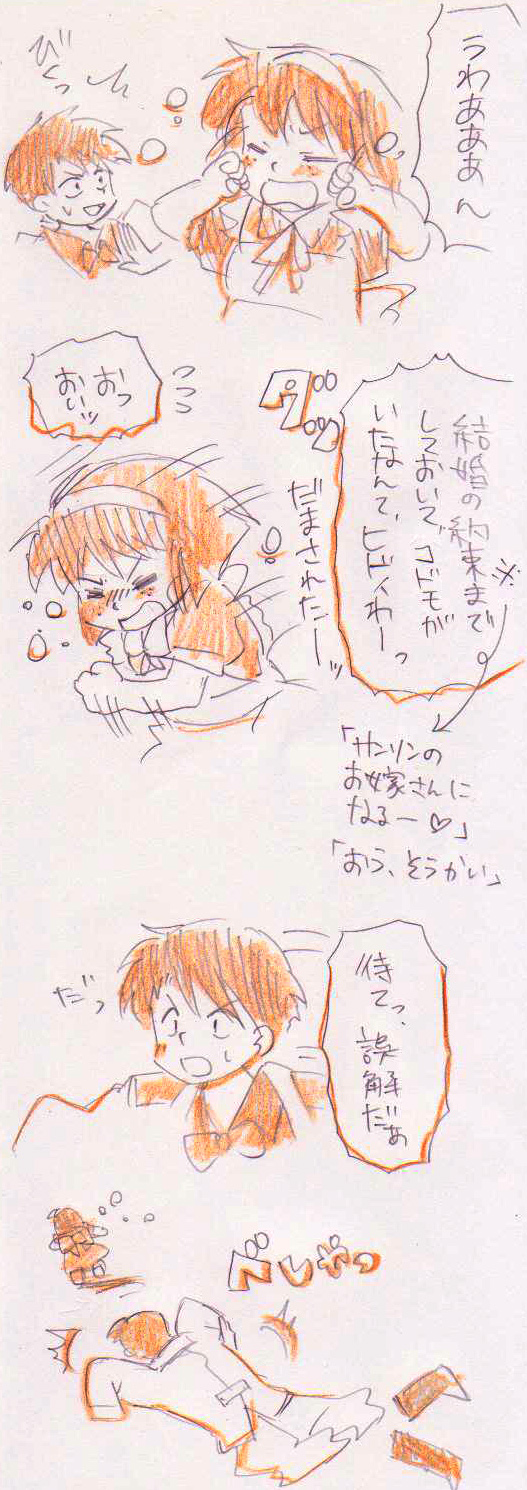 うわあああん
びくっ
結婚の約束まで※
しておいて、コドモが
いたなんて、ヒドイわーっ
ダッ
だまされたーッ
おっ
おいッ
「サンソンの
お嫁さんに
なるー♡」
「おう、そうかい」
待てっ、
誤解だぁ
だっ
べしゃっ